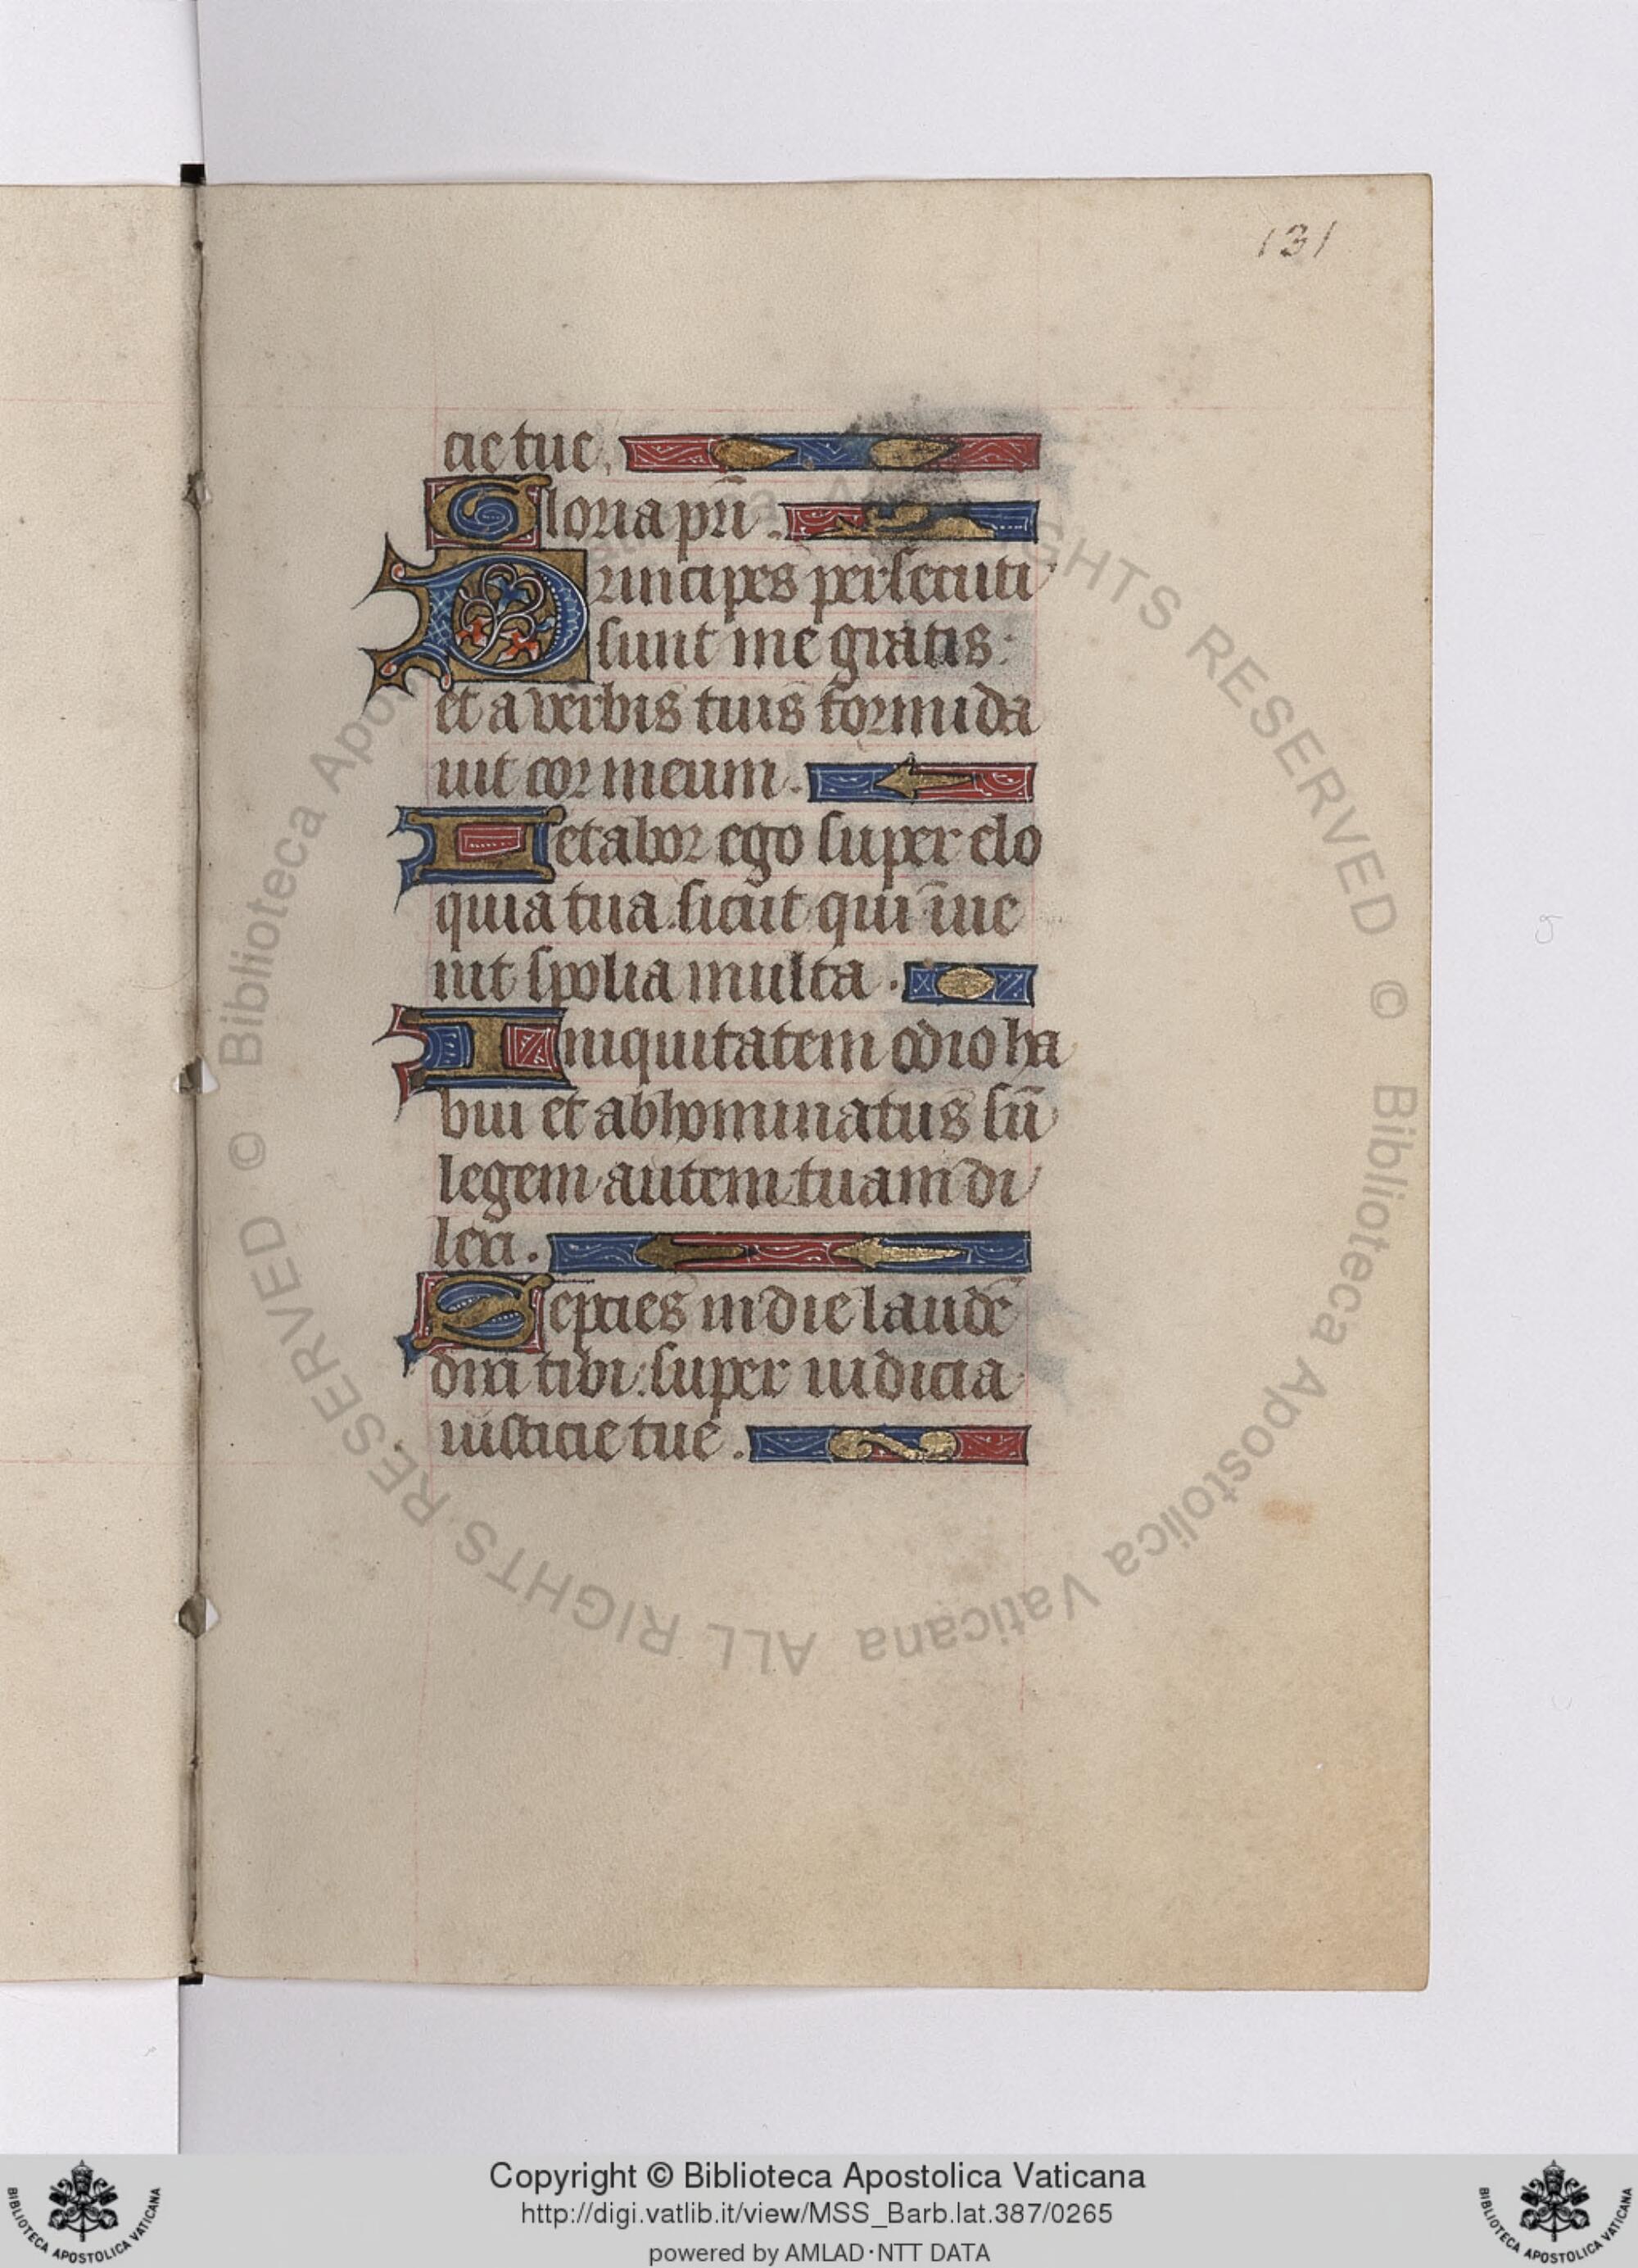 131
cie tue.
Gloria pr̄i.
Principes persecuti
sunt me gratis:
et a verbis tuis formida
uit cor meum.
Letabor ego super elo
quia tua. sicut qui īue
nit spolia multa.
Iniquitatem odio ha
bui et abhominatus sū
legem autem tuam di
lexi.
Septies in die laudē
dixi tibi: super iudicia
iusticie tue.
© Biblioteca Apostolica Vaticana ALL RIGHTS RESERVED © Biblioteca Apostolica Vaticana ALL RIGHTS RESERVED
Copyright © Biblioteca Apostolica Vaticana
http://digi.vatlib.it/view/MSS_Barb.lat.387/0265
powered by AMLAD·NTT DATA
BIBLIOTECA APOSTOLICA VATICANA
BIBLIOTECA APOSTOLICA VATICANA